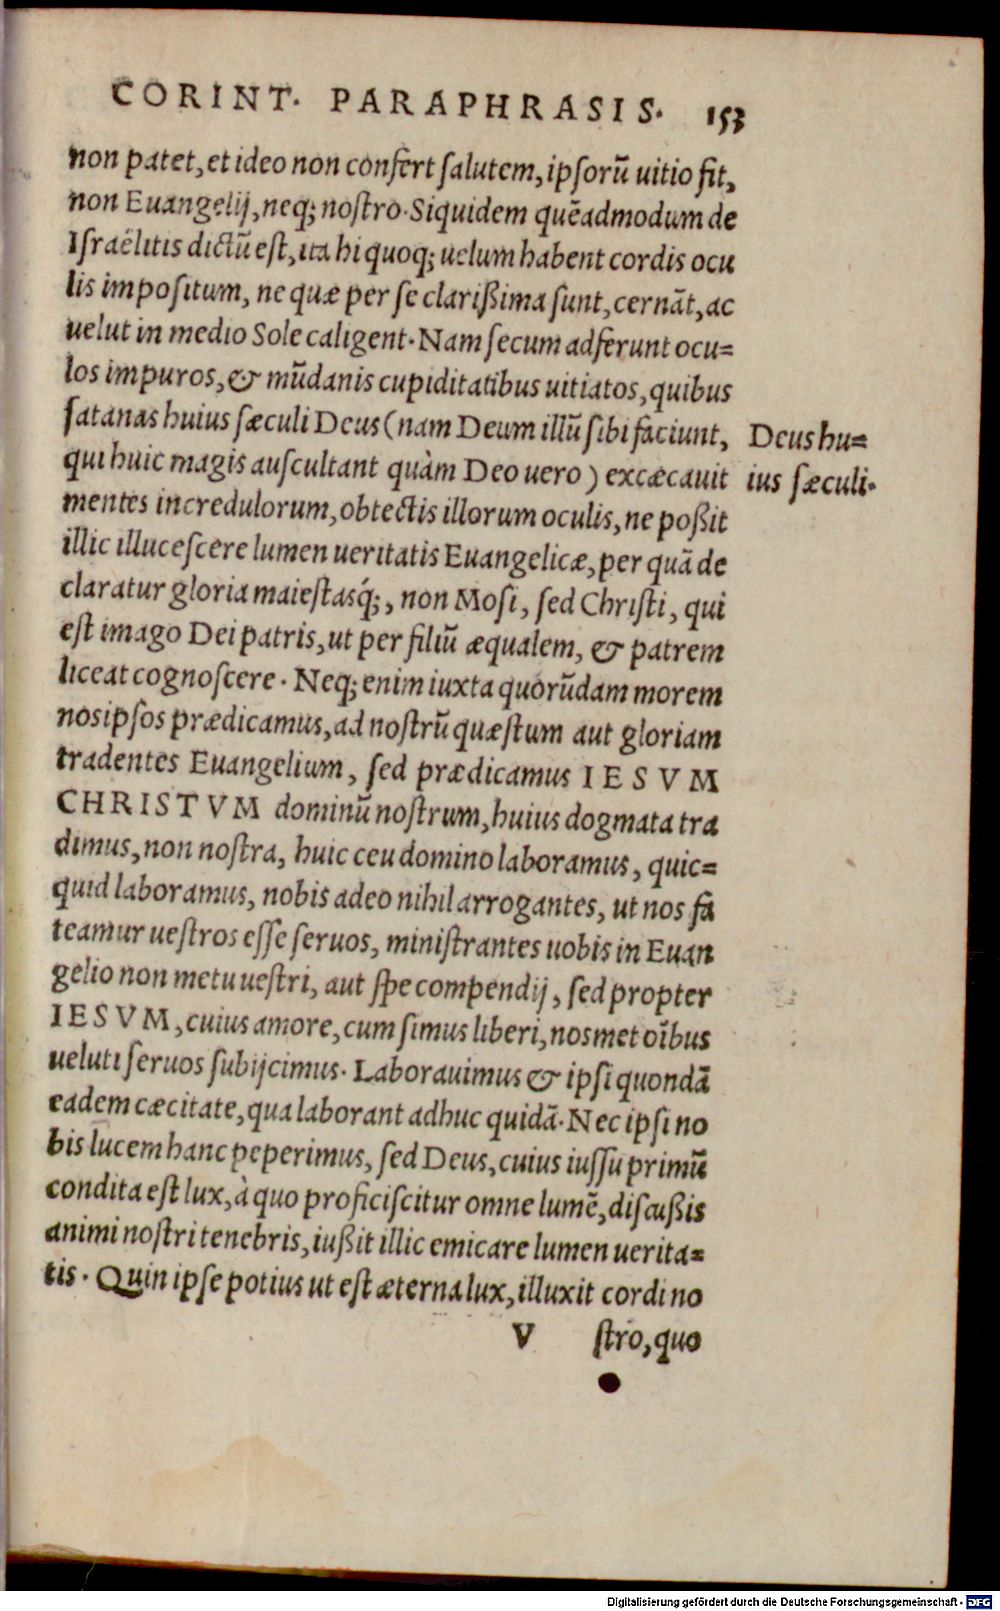 CORINT. PARAPHRASIS. 153
non patet, et ideo non confert ſalutem, ipſorũ uitio fit,
non Euangelij, neq; noſtro. Siquidem quẽadmodum de
Iſraëlitis dictũ eſt, ita hi quoq; uelum habent cordis ocu
lis impoſitum, ne quæ per ſe clarißima ſunt, cernãt, ac
uelut in medio Sole caligent. Nam ſecum adferunt ocu=
los impuros, & mũdanis cupiditatibus uitiatos, quibus
ſatanas huius ſæculi Deus (nam Deum illũ ſibi faciunt,
Deus hu=
qui huic magis auſcultant quàm Deo uero) excæcauit
ius ſæculi.
mentes incredulorum, obtectis illorum oculis, ne poßit
illic illuceſcere lumen ueritatis Euangelicæ, per quã de
claratur gloria maieſtasq́;, non Moſi, ſed Chriſti, qui
eſt imago Dei patris, ut per filiũ æqualem, & patrem
liceat cognoſcere. Neq; enim iuxta quorũdam morem
nosipſos prædicamus, ad noſtrũ quæſtum aut gloriam
tradentes Euangelium, ſed prædicamus IESVM
CHRISTVM dominũ noſtrum, huius dogmata tra
dimus, non noſtra, huic ceu domino laboramus, quic=
quid laboramus, nobis adeo nihil arrogantes, ut nos fa
teamur ueſtros eſſe ſeruos, miniſtrantes uobis in Euan
gelio non metu ueſtri, aut ſpe compendij, ſed propter
IESVM, cuius amore, cum ſimus liberi, noſmet oĩbus
ueluti ſeruos ſubijcimus. Laborauimus & ipſi quondã
eadem cæcitate, qua laborant adhuc quidã. Nec ipſi no
bis lucem hanc peperimus, ſed Deus, cuius iuſſu primũ
condita eſt lux, à quo proficiſcitur omne lumẽ, diſcußis
animi noſtri tenebris, iußit illic emicare lumen uerita=
tis. Quin ipſe potius ut eſt æterna lux, illuxit cordi no
V ſtro, quo
Digitalisierung gefördert durch die Deutsche Forschungsgemeinschaft - DFG